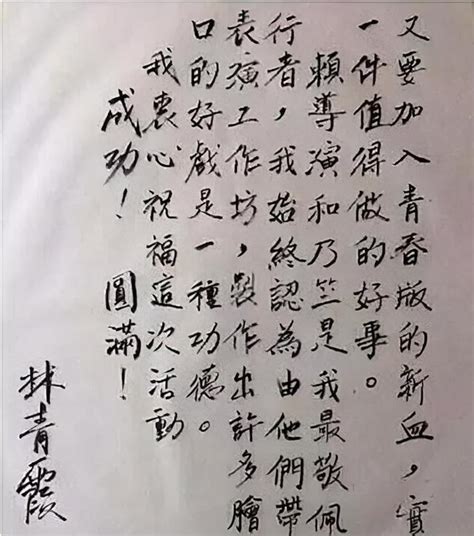 又要加入青春版的新血，實
一件值得做的好事。
賴導演和乃竺是我最敬佩
行者，我始終認為由他們帶
表演工作坊，製作出許多膾
口的好戲是一種功德。
我衷心祝福這次活動
成功！圓滿！
林青霞